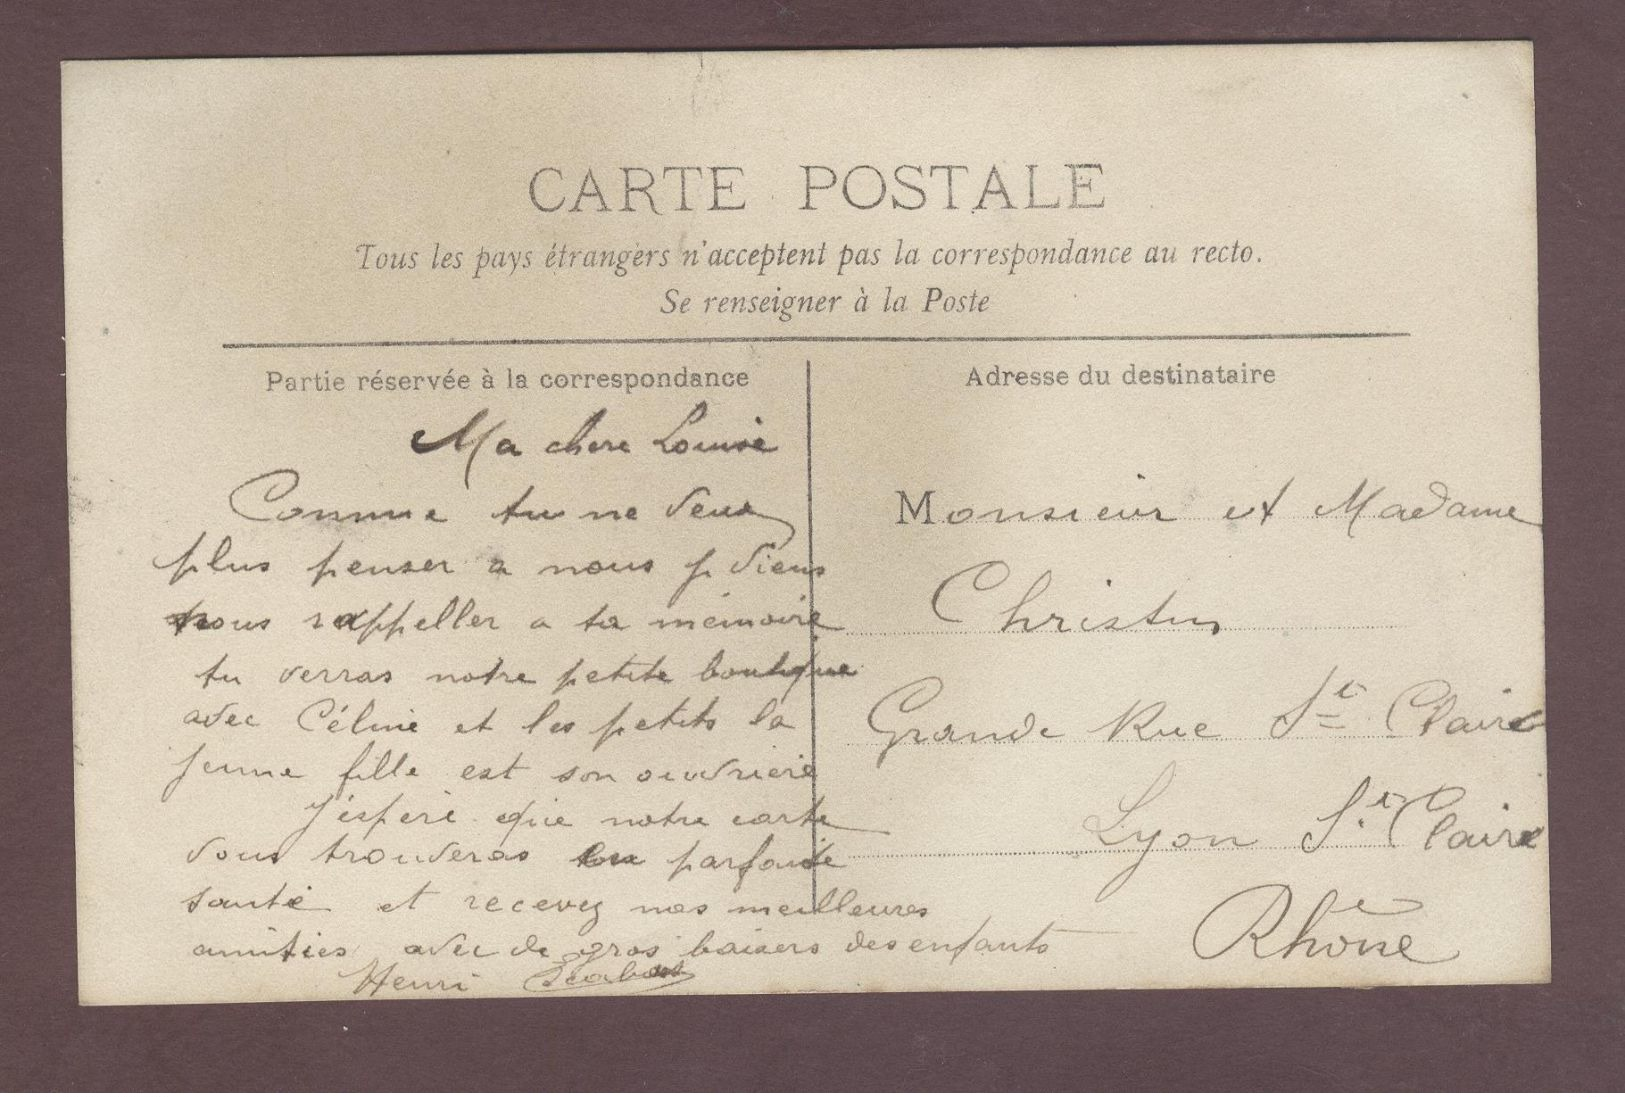 CARTE POSTALE
Tous les pays étrangers n'acceptent pas la correspondance au recto.
Se renseigner à la Poste
Partie réservée à la correspondance
Ma chere Louise
Comme tu ne veux
plus penser a nous je viens
nous rappeller a ta mémoire
tu verras notre petite boutique
avec Céline et les petits la
jeune fille est son ouvriere
J'éspère que notre carte
vous trouveras en parfaite
santé et recevez nos meilleures
amitiés avec de gros baisers des enfants
Henri
Adresse du destinataire
Monsieur et Madame
Christin
Grande Rue Ste Claire
Lyon St Claire
Rhône